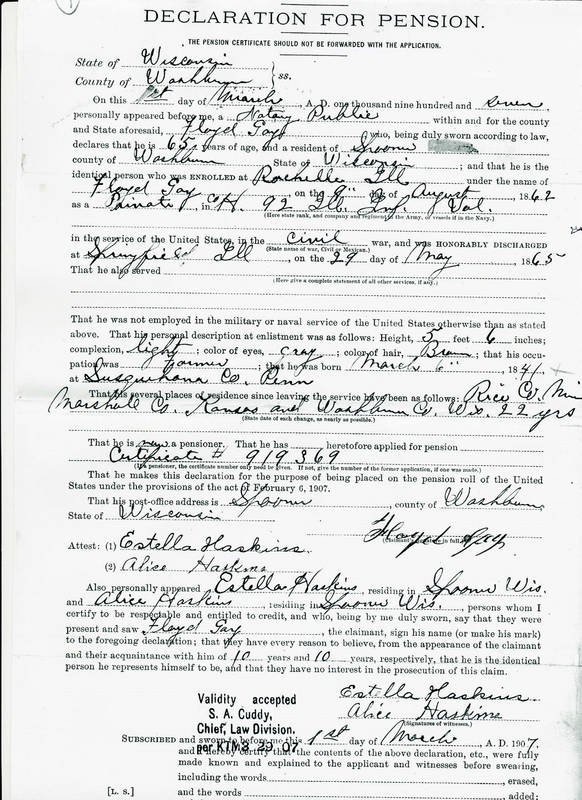 DECLARATION FOR PENSION.
THE PENSION CERTIFICATE SHOULD NOT BE FORWARDED WITH THE APPLICATION.
State of Wisconsin
County of Washburn } ss.
On this 1st day of March, A. D. one thousand nine hundred and seven,
personally appeared before me, a Notary Public within and for the county
and State aforesaid, Floyd Gay, who, being duly sworn according to law,
declares that he is 65 years of age, and a resident of Spooner
county of Washburn, State of Wisconsin; and that he is the
identical person who was ENROLLED at Rochelle Ill under the name of
Floyd Gay, on the 9" day of August, 1862
as a Private, in Co H. 92 Ill. Inf. Vol.
(Here state rank, and company and regiment in the Army, or vessels if in the Navy.)
in the service of the United States, in the Civil war, and was HONORABLY DISCHARGED
(State name of war, Civil or Mexican.)
at Springfield Ill, on the 29 day of May, 1865
That he also served
(Here give a complete statement of all other services, if any.)
That he was not employed in the military or naval service of the United States otherwise than as stated
above. That his personal description at enlistment was as follows: Height, 5 feet 6 inches;
complexion, light; color of eyes, gray; color of hair, Brown; that his occu-
pation was Farmer; that he was born March 6", 1841,
at Susquehana Co. Penn
That his several places of residence since leaving the service have been as follows: Rice Co. Minn
Marshall Co. Kansas and Washburn Co. Wis. 22 yrs
(State date of each change, as nearly as possible.)
That he is a pensioner. That he has heretofore applied for pension
Certificate # 919369
(If a pensioner, the certificate number only need be given. If not, give the number of the former application, if one was made.)
That he makes this declaration for the purpose of being placed on the pension roll of the United
States under the provisions of the act of February 6, 1907.
That his post-office address is Spooner, county of Washburn,
State of Wisconsin
Floyd Gay
(Claimant's signature in full.)
Attest: (1) Estella Haskins.
(2) Alice Haskins
Also personally appeared Estella Haskins, residing in Spooner Wis.
and Alice Haskins, residing in Spooner Wis., persons whom I
certify to be respectable and entitled to credit, and who, being by me duly sworn, say that they were
present and saw Floyd Gay, the claimant, sign his name (or make his mark)
to the foregoing declaration; that they have every reason to believe, from the appearance of the claimant
and their acquaintance with him of 10 years and 10 years, respectively, that he is the identical
person he represents himself to be, and that they have no interest in the prosecution of this claim.
Estella Haskins.
Alice Haskins
(Signatures of witnesses.)
Validity accepted
S. A. Cuddy,
Chief, Law Division.
per
SUBSCRIBED and sworn to before me this 1st day of March, A. D. 1907.
and I hereby certify that the contents of the above declaration, etc., were fully
made known and explained to the applicant and witnesses before swearing,
including the words, erased,
[L. S.] and the words, added;